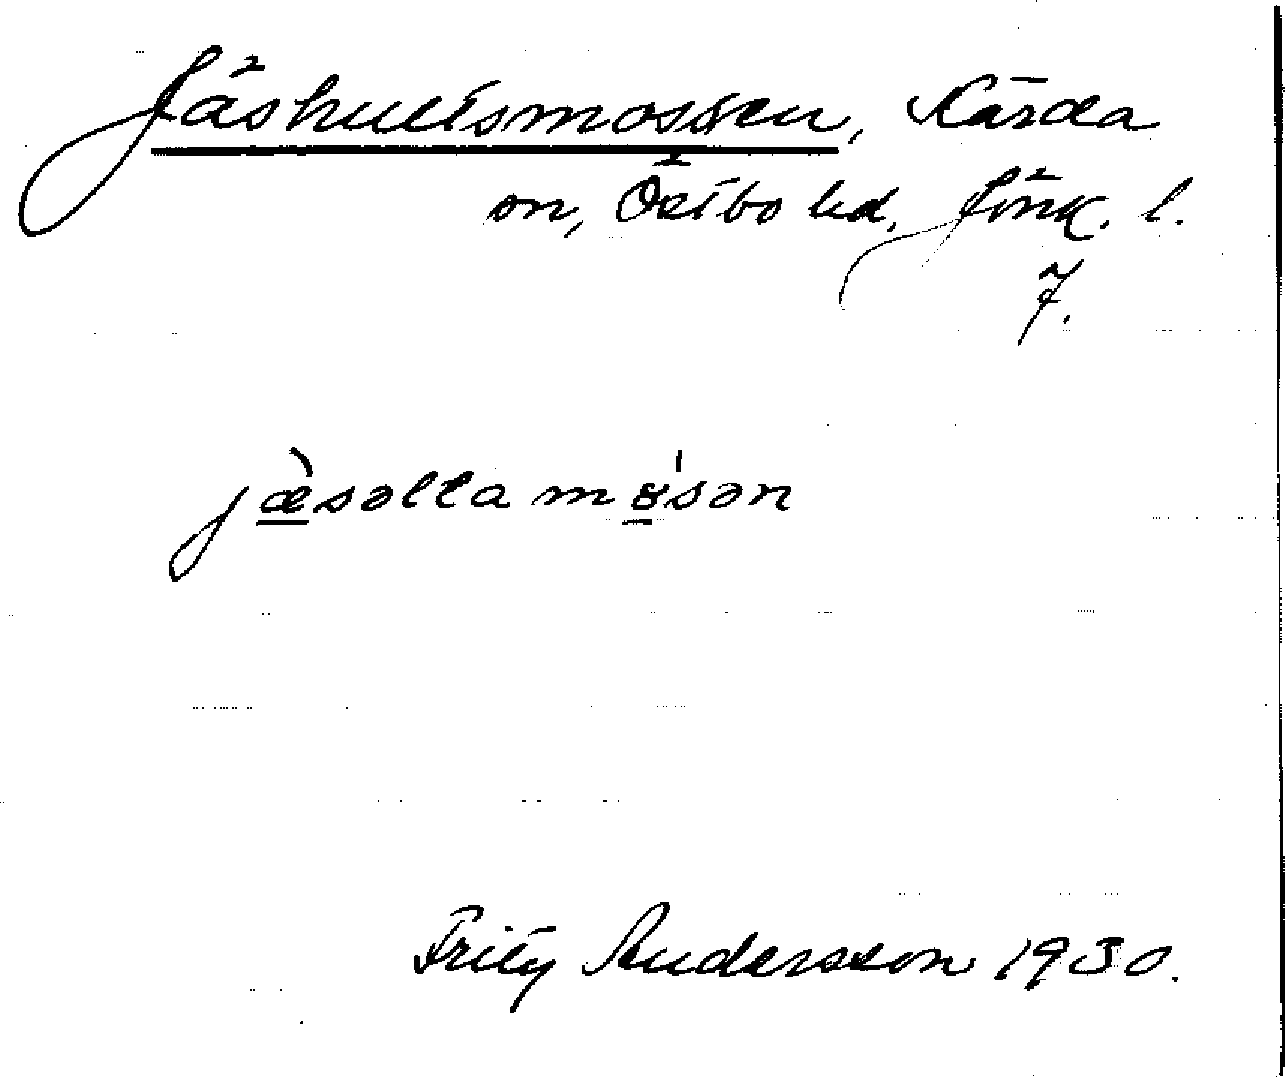 Jäshultsmossen, Kärda
sn, Östbo hd, Jönk. l.
7.
jæ̀səltta mɤ'sən
Fritz Andersson 1930.